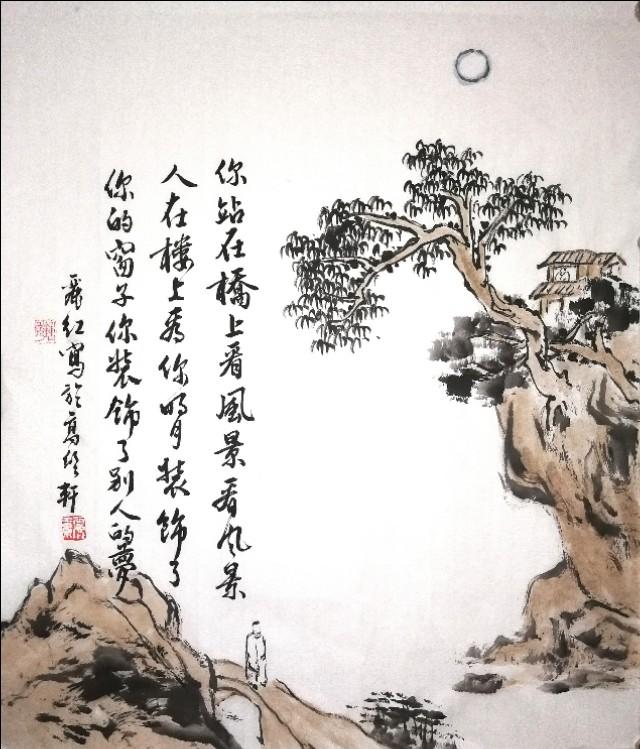 你站在橋上看風景看风景
人在楼上看你明月装飾了
你的窗子你装飾了别人的夢
红寫於高轩